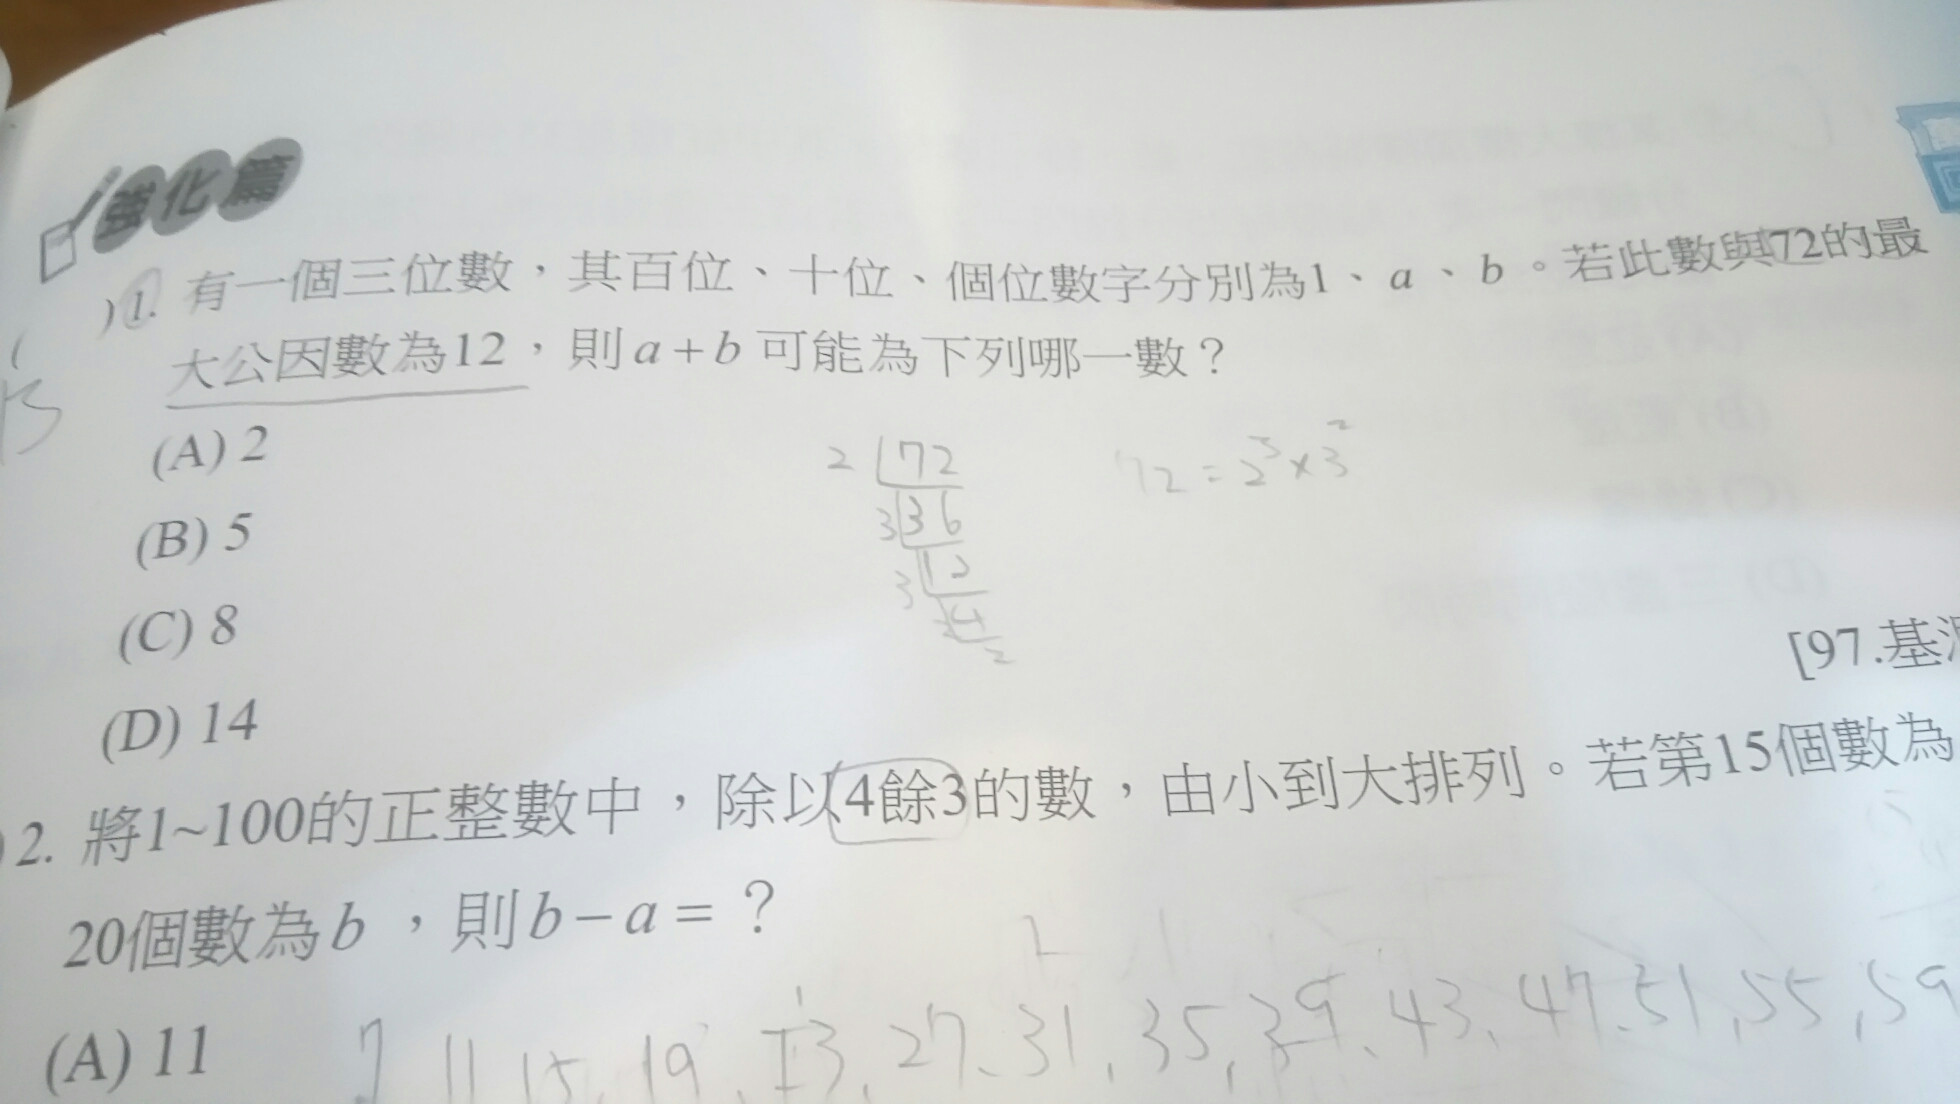 強化篇
)1. 有一個三位數，其百位、十位、個位數字分別為1、a、b。若此數與72的最
大公因數為12，則a+b可能為下列哪一數？
(A) 2
(B) 5
(C) 8
(D) 14
2 72
3 36
3 12
4
2
72=2³×3²
[97.基
2. 將1~100的正整數中，除以4餘3的數，由小到大排列。若第15個數為
20個數為b，則b-a=？
(A) 11
7 11 15、19、23、27、31，35，39、43、47、51，55，59